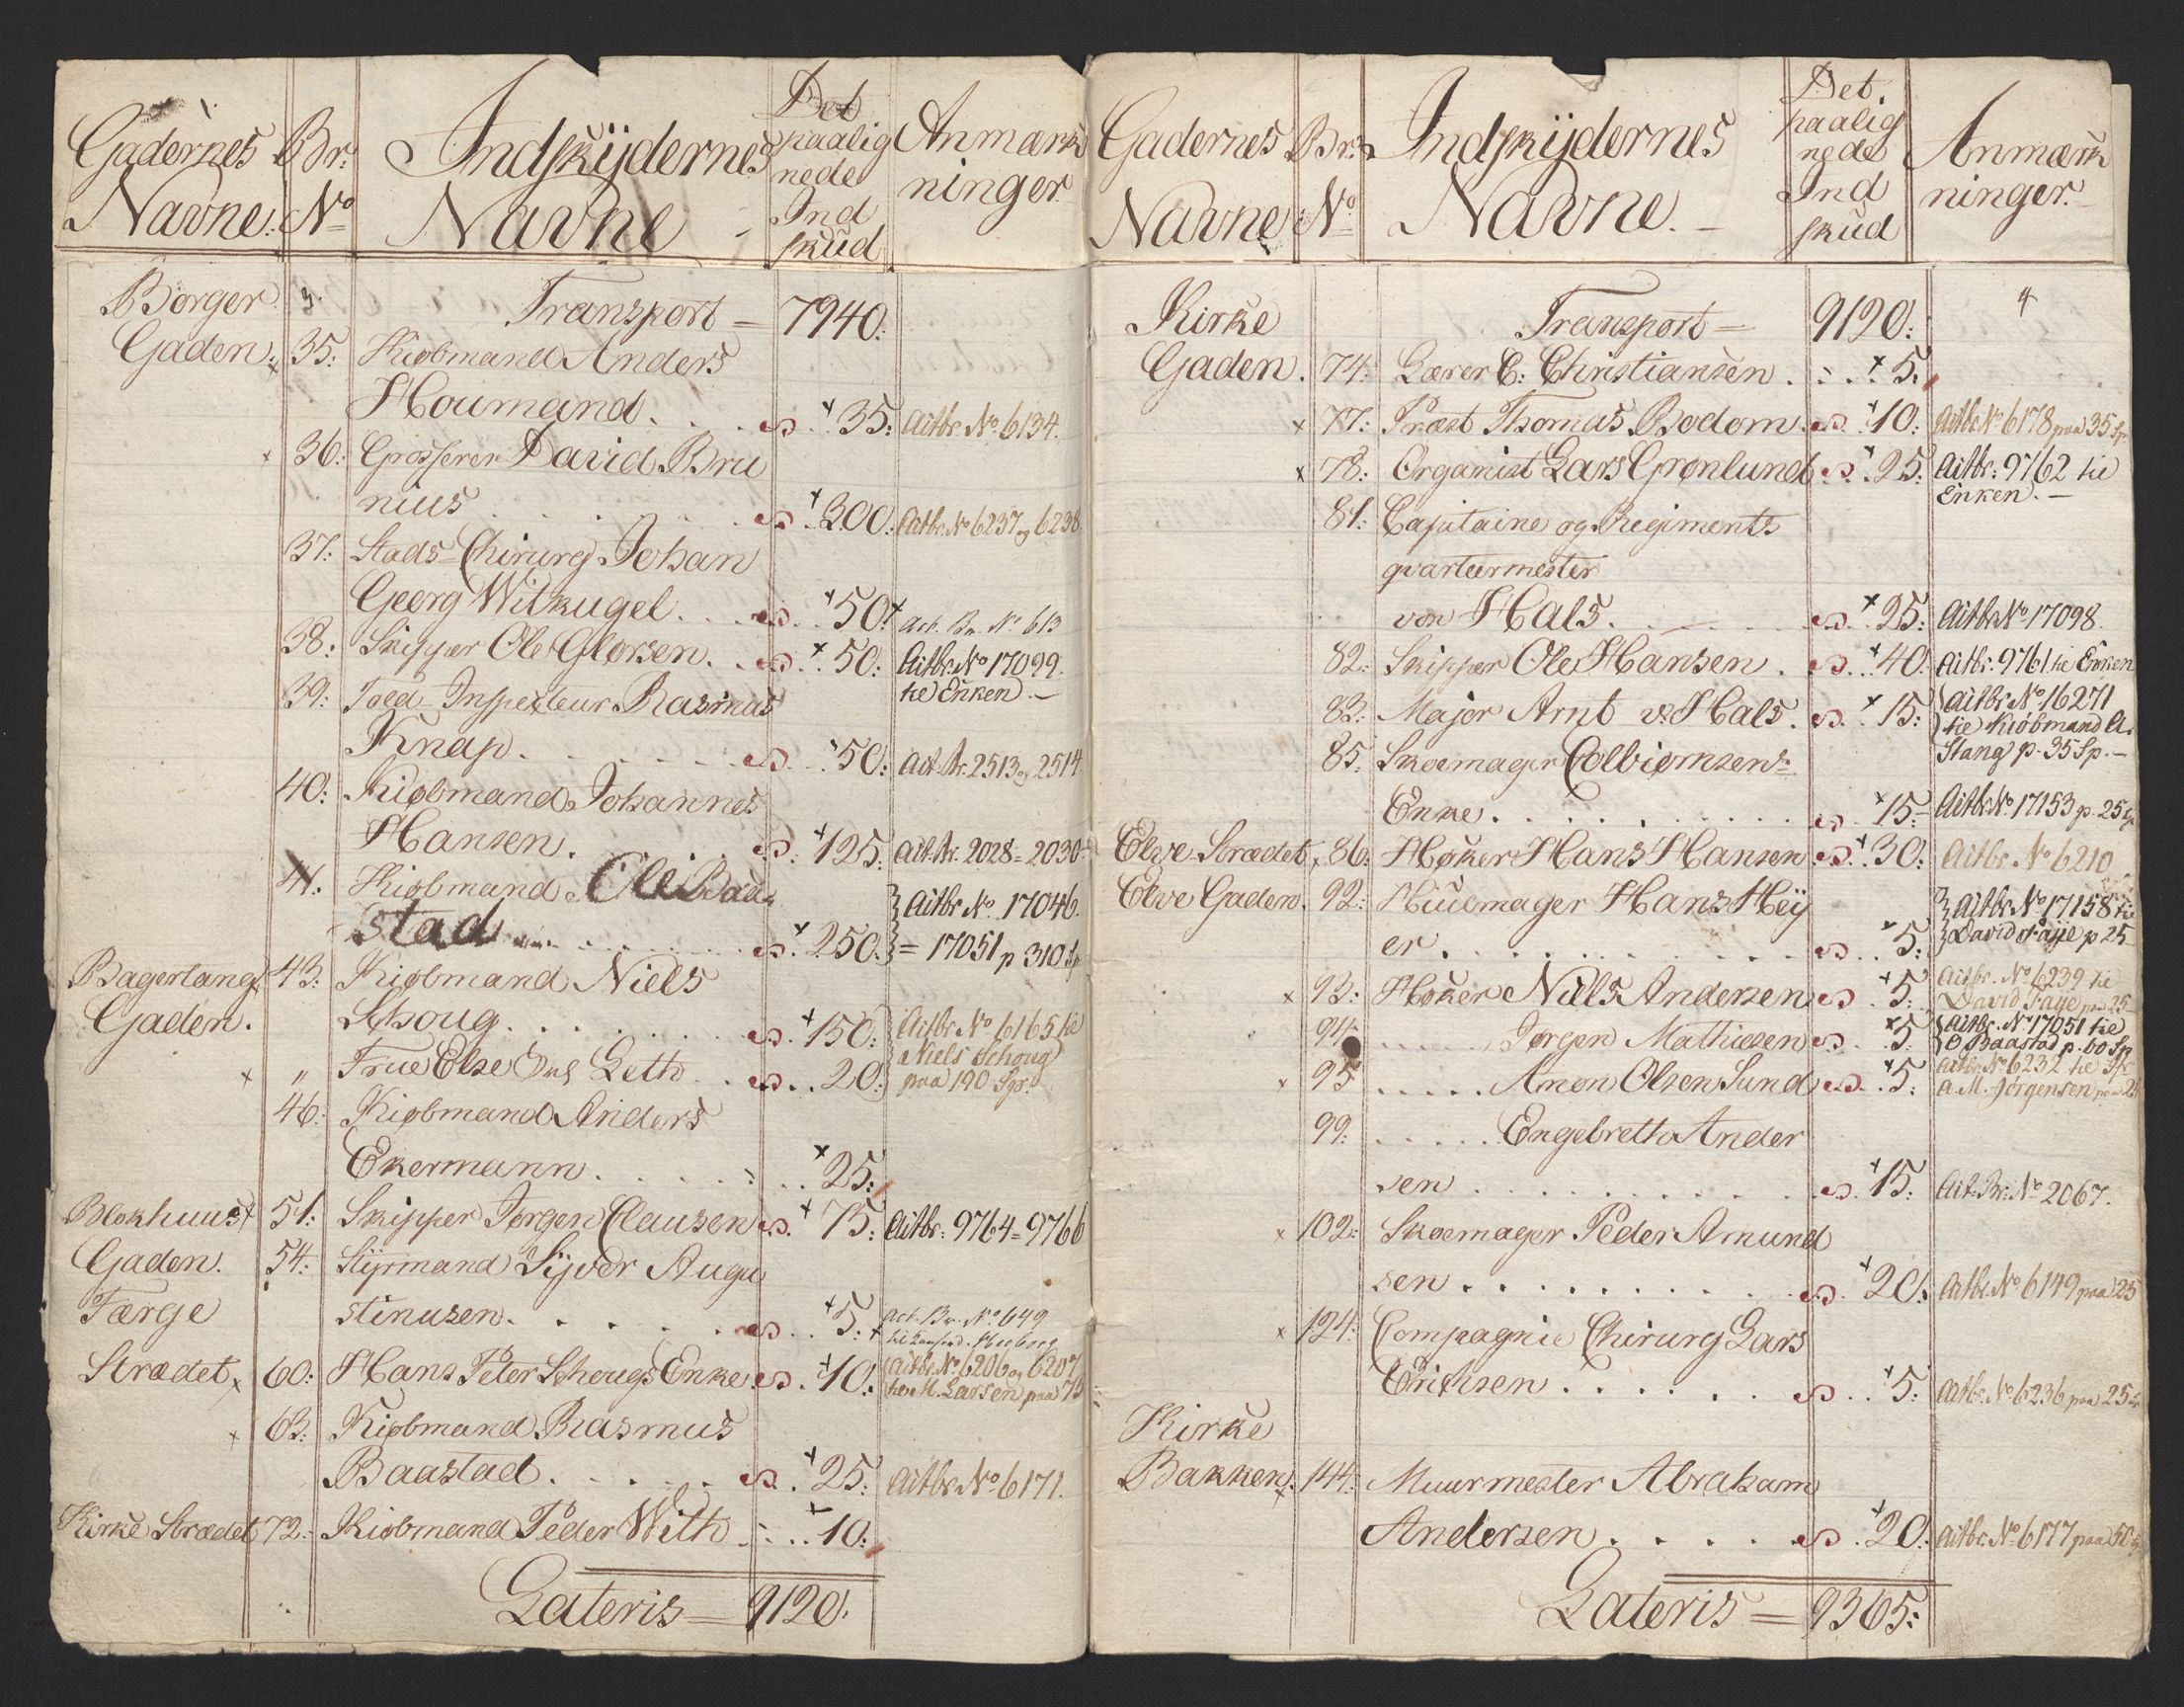 Gadernes Br: Indskÿdernes Det paalig Anmærk
Navne: No Navne - nede Ind skud ninger
Borger 3. Transport = 7940:
Gaden: 35: Kiøbmand Anders
Houmand. . . . s. 35: Aitbr. No 6134.
36: Grosserer David Bru
nius . . . . s. 300: Aitbr. No 6237 og 6238.
37: Stads-Chirurg Johan
Georg Witkugel. . . . s. 50: Act. Br. No 613
38: Skipper Ole Glørsen. . s. 50: Aitbr. No 17099.
til Enken. -
39: Told-Inspecteur Rasmus
Knap. . . . . s. 50: Act. Br. 2513 og 2514
40: Kiøbmand Johannes
Hansen. . . . s. 125: Act. Br. 2028 = 2030
41: Kiøbmand Ole Baa-
stad . . . . s. 250: Aitbr No. 17046.
= 17051 p 310 Sp
Bagerlang 43: Kiøbmand Niels
Gaden. Schoug. . . . . s. 150: Aitbr. No 6165 til
Niels Schoug
" Frue Else Leth . . s. . 20: paa 190 Sp.
46: Kiøbmand Anders
Ekermann. . . . . 25:
Blokhuus 51: Skipper Jørgen Clausen s. 75: Aitbr: 9764 = 9766
Gaden. 54: Stÿrmand Sÿver Augu
Færge stinusen. . . . . s. . 5: Act. Br. No 649
Strædet 60: Hans Peter Schougs Enke s. 10: Aitbr. No 6206 og 6207
M. Larsen paa 75
63: Kiøbmand Rasmus
Baastad. . . . . s. 25: Aitbr. No 6171.
Kirke Strædet 72.- Kiøbmand Peder With . . . 10:
Lateris = 9120.
Gadernes Br: Indskÿdernes Det paalig Anmærk
Navne: No Navne. - nede Ind skud ninger. -
Kirke Transport = 9120: 4
Gaden. 74: Lærer C: Christiansen . . . 5:
77: Præst Thomas Bodom s. 10: Aitbr. No 6178 paa 35 Sp
78: Organist Lars Grønlund s. 25: Aitbr: 9762 til
Enken. -
81: Capitaine og Regiments
qvarteermester
von Hals. . . . . s. 25: Aitbr No 17098.
82: Skipper Ole Hansen . s. 40: Aitbr: 9761 til Enken
83: Major Arnt v: Hals. s. 15: Aitbr No 16271
til Kiøbmand A.
Stang p. 35 Sp. -
85: Skoemager Colbiørnsens
Enke. . . . . s. 15: Aitbr No. 17153 p. 25 Sp
Elve Strædet 86: Høker Hans Hansen s. 30: Aitbr. No 6210
Elve Gaden. 92: Hiulmager Hans Heÿ
er. . . . . s. 5: Aitbr No 17158 til
David Faÿe p 25
93: Høker Niels Andersen s. 5: Aitbr. No 6239 til
David Faye paa 25
94: . . . . Jørgen Mathiesen s. 5: Aitbr. No 17051 til
O Baastad p. 60 Sp
95 . . . . . Amon Olsen Lund s. 5: Aitbr. No 6232 til
A. M. Jørgensen
99: . . . . . Engebreth Ander
sen . . . . . s. 15: Act. Br: No 2067.
102: Skoemager Peder Amund
sen . . . . . s. 20: Aitbr. No 6149 paa 25
124: Compagnie Chirurg Lars
Erichsen . . . . s. . 5: Aitbr. No 6236 paa 25 Sp
Kirke
Bakken. 144: Muurmester Abraham
Andersen . . . . s. 20: Aitbr. No 6177 paa 50 Sp
Lateris = 9365: